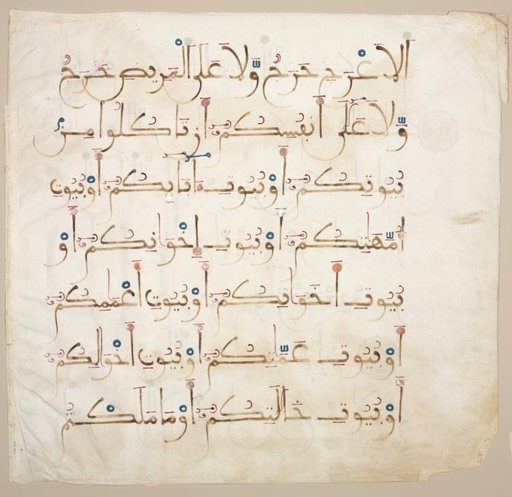 الَاعْرَجِ حَرَجٌ وَّلَا عَلَى الْمَرِيضِ حَرَجٌ
وَّلَا عَلَىٰ أَنفُسِكُمُ أَن تَاكُلُوا مِنۢ
بُيُوتِكُمُ أَوْ بُيُوتِ ءَابَآئِكُمُ أَوْ بُيُوتِ
أُمَّهَٰتِكُمُ أَوْ بُيُوتِ إِخْوَٰنِكُمُ أَوْ
بُيُوتِ أَخَوَٰتِكُمُ أَوْ بُيُوتِ أَعْمَٰمِكُمُ
أَوْ بُيُوتِ عَمَّٰتِكُمُ أَوْ بُيُوتِ أَخْوَٰلِكُمُ
أَوْ بُيُوتِ خَٰلَٰتِكُمُ أَوْ مَا مَلَكْتُم